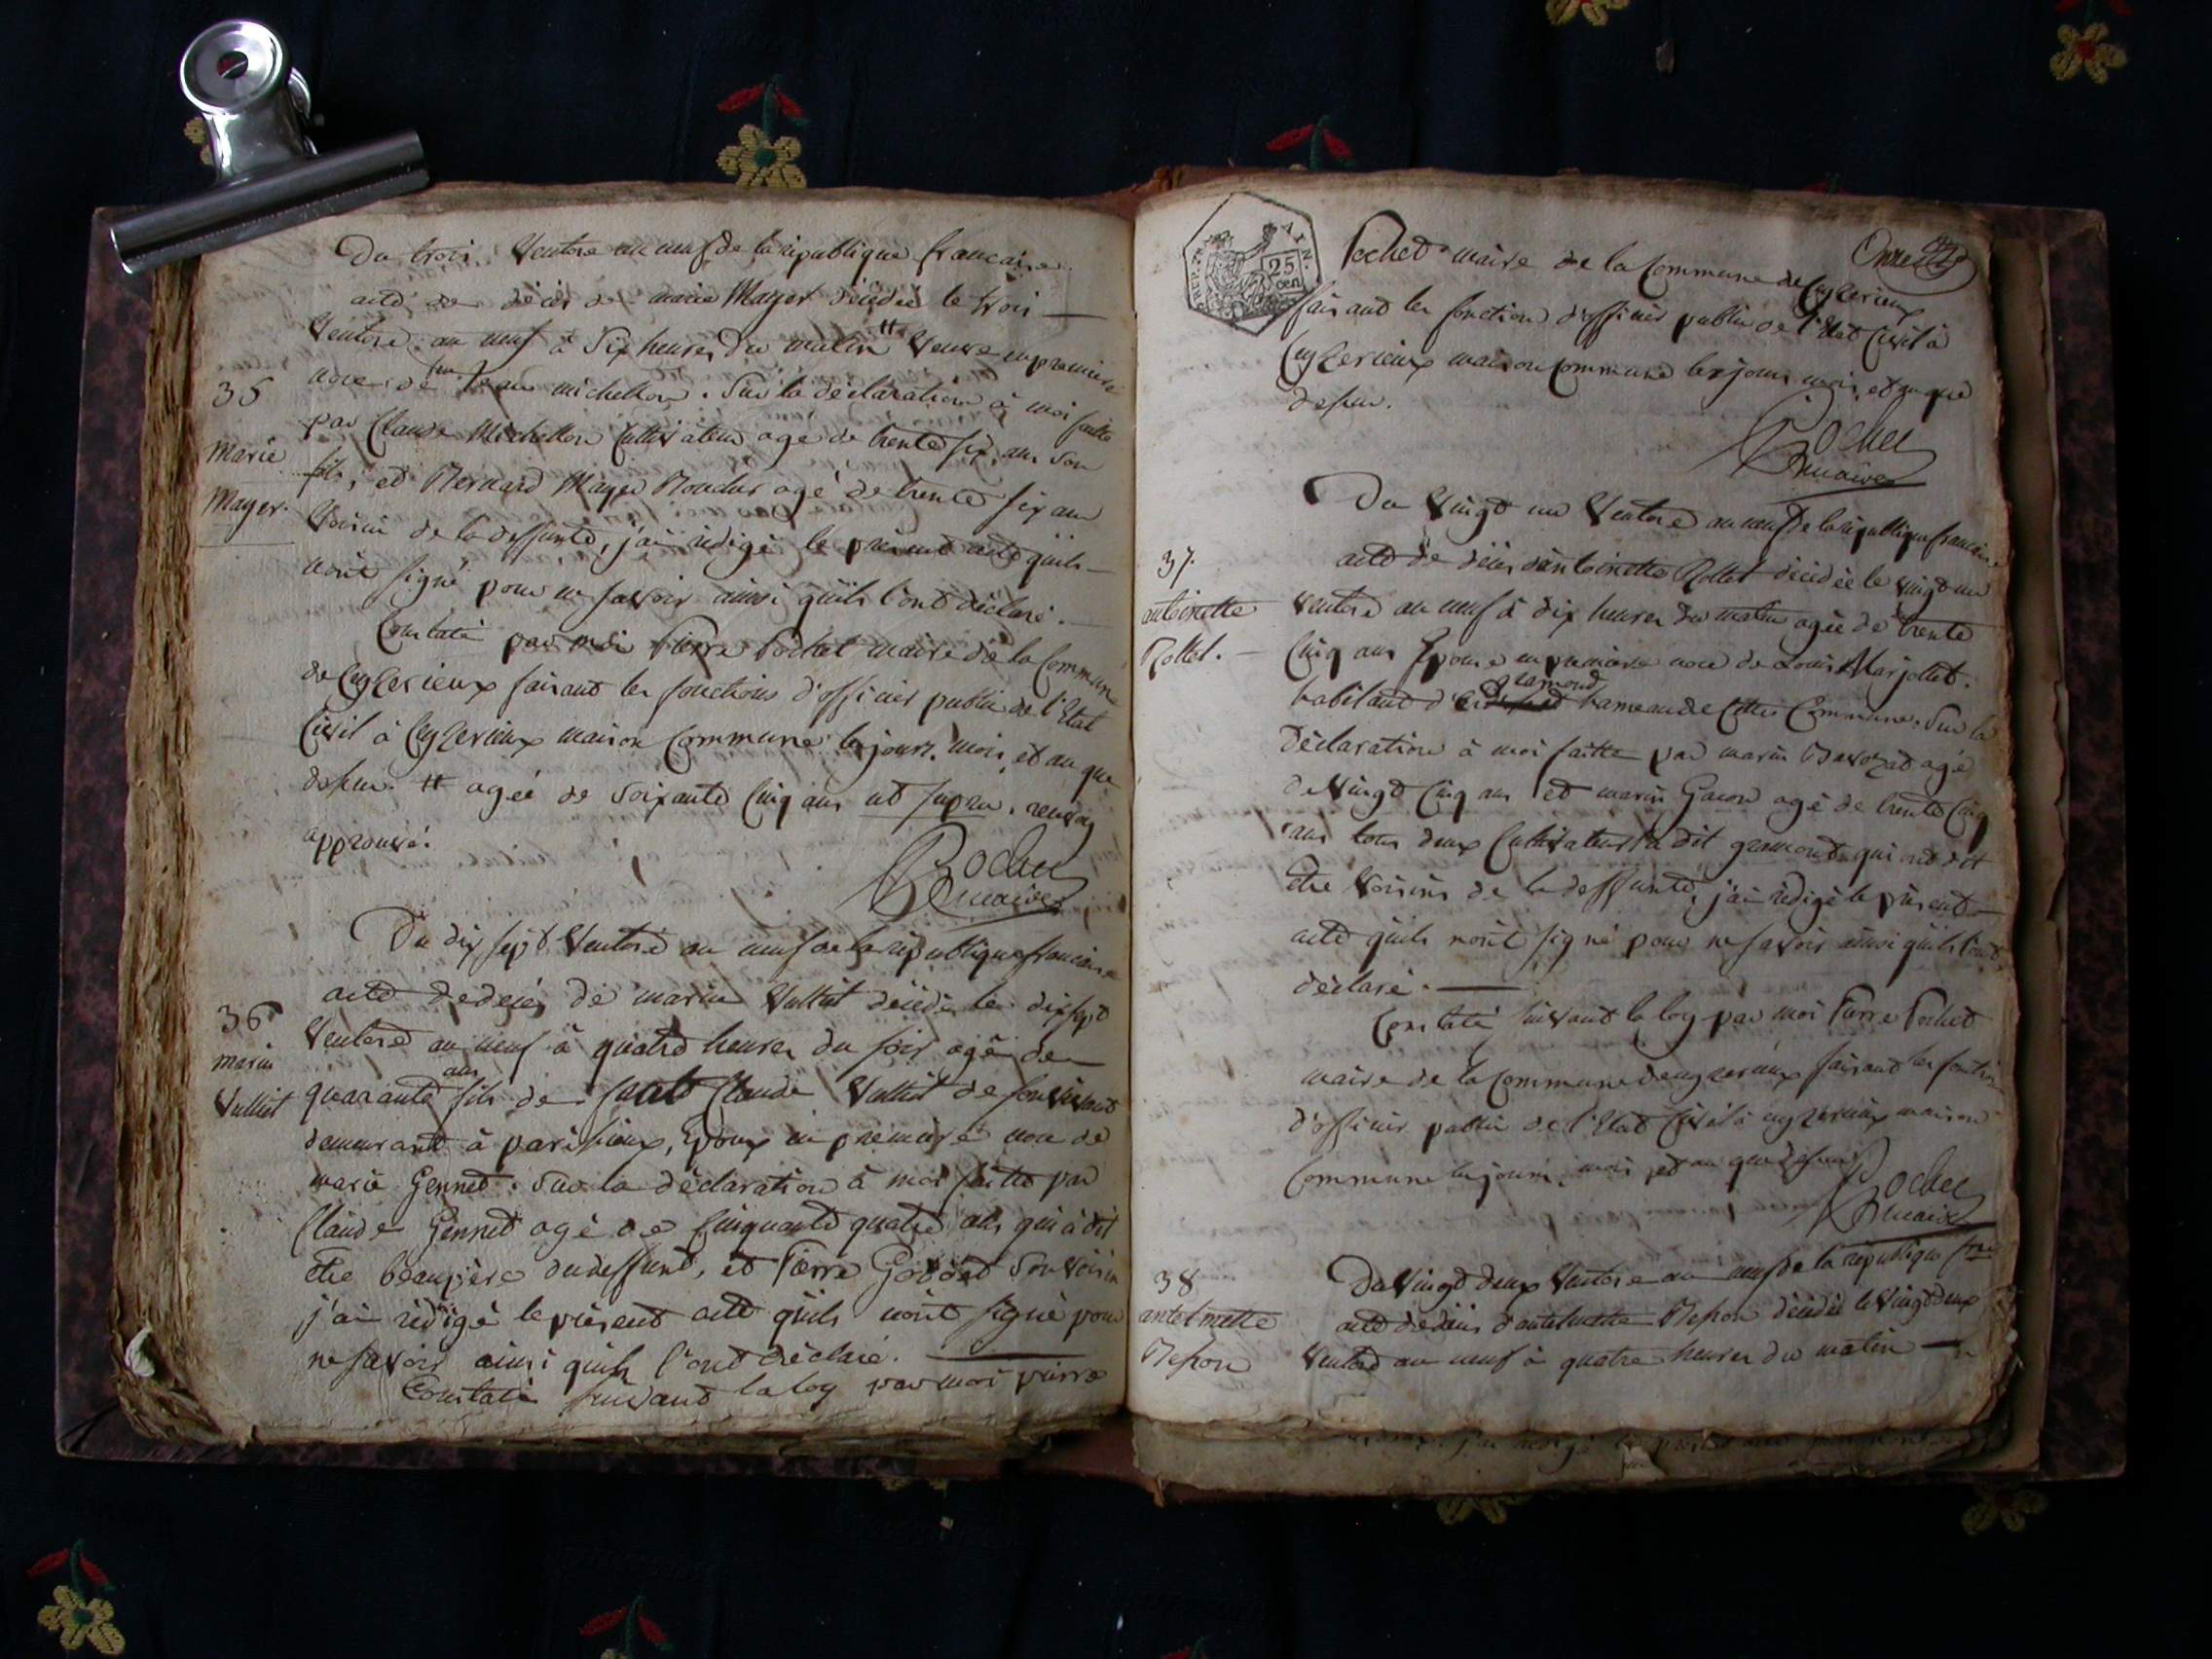 Du trois Ventose an neuf de la republique francaise.
acte de décès de marie Mayet décédée le trois
Ventose an neuf à Six heures du matin # Veuve en premiere
noce de feu Jean michellon. Sur la déclaration à moi faitte
35
par Claude Michellon Cultivateur agé de trente six ans Son
Marie
fils, et Bernard Mayet agé de trente six ans
Mayet.
Voisin de la deffunte, j'ai rédigé le présent acte quils
nont signé pour ne savoir ainsi quils l'ont déclaré.
Constaté par moi Pierre Pochet maire de la Commune
de Ceyzerieux faisant les fonctions d'officier public de l'Etat
Civil à Ceyzerieux maison Commune les jours, mois, et an que
dessus. # agée de Soixante Cinq ans ut supra. renvoy
approuvé.
Pochet
maire
Du dix sept Ventose an neuf de la republique francaise
acte de decès de marin Vulliet décédé le dix sept
36
Ventose an neuf à quatre heures du soir agé de
marin
quarante ans fils de Claude Vulliet de son vivant
Vulliet
demeurant à parissieux, Epoux en premiere noce de
marie Gennet. Sur la déclaration à moi faitte par
Claude Gennet agé de Cinquante quatre ans qui à dit
etre beaupère du deffunt, et Pierre Son Voisin
j'ai rédigé le présent acte quils nont signé pour
ne savoir ainsi quils l'ont déclaré.
Constaté suivant la loy par moi pierre
AIN.
25
cen.
Onze
Pochet maire de la Commune de Ceyzerieux
faisant les fonctions d'officier public de l'Etat Civil à
Ceyzerieux maison Commune les jours mois et an que
dessus.
Pochet
maire
Du Vingt un Ventose an neuf de la republique francaise
37.
acte de décès dantoinette Rollet décédée le vingt un
antoinette
Ventose an neuf à dix heures du matin agée de trente
Rollet.
Cinq ans Epouse en premiere noce de Louis Marjollet.
habitant d' gramond hameau de Cette Commune. Sur la
déclaration à moi faitte par marin agé
de Vingt Cinq ans et marin Gacon agé de trente Cinq
ans tous deux Cultivateurs a dit gramond qui ont dit
etre Voisins de la deffunte, j'ai rédigé le présent
acte quils nont signé pour ne savoir ainsi quils l'ont
déclaré.
Constaté suivant la loy par moi Pierre Pochet
maire de la Commune de Ceyzerieux faisant les fonctions
d'officier public de l'Etat Civil à Ceyzerieux maison
Commune les jours, mois, et an que dessus
Pochet
maire
38
Du Vingt deux Ventose an neuf de la republique
antelmette
acte de décès d'antelmette décédée le Vingt deux
Ventose an neuf à quatre heures du matin